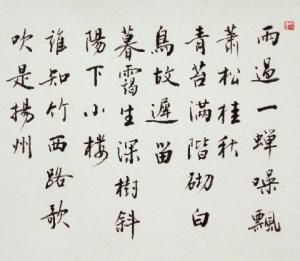 雨過一蟬噪飄
蕭松桂秋
青苔滿階砌白
鳥故遲留
暮靄生深樹斜
陽下小樓
誰知竹西路歌
吹是揚州